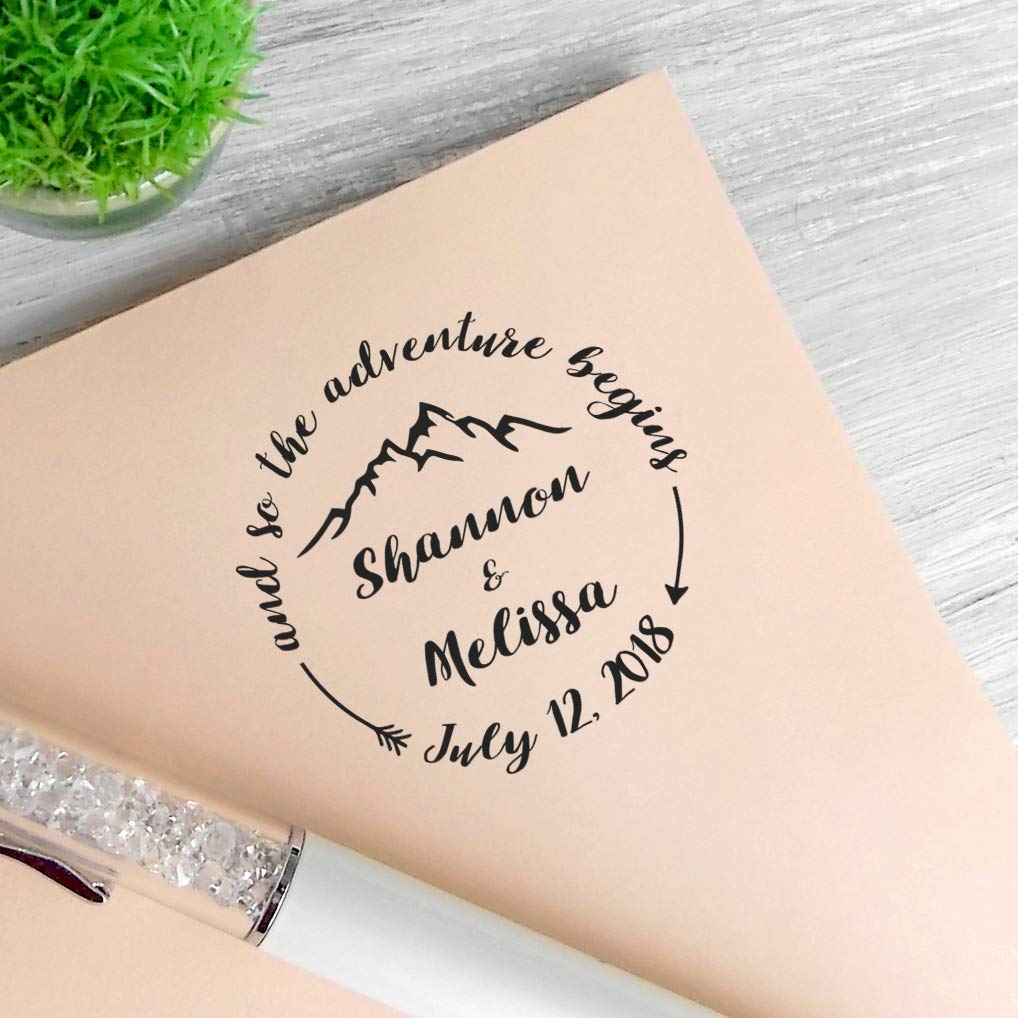 and so the adventure begins
Shannon
&
Melissa
July 12, 2018